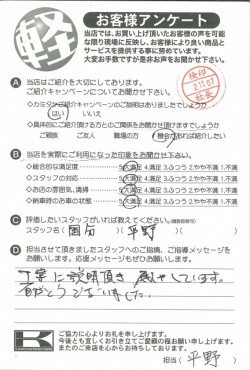 軽
お客様アンケート
当店では、お買い上げ頂いたお客様の声を可能
な限り現場に反映し、お客様により良い商品と
サービスを提供する事に努めています。
大変お手数ですが是非お声をお聞かせ下さい。
A 当店はご紹介を大切にしております。
ご紹介キャンペーンについてお聞かせ下さい。
はい いいえ
ご親戚 ご友人 職場の方 機会があれば紹介したい
B 当店を実際にご利用になった印象をお聞かせ下さい。
◇総合的な満足度 5.大満足 4.満足 3.ふつう 2.やや不満 1.不満
◇スタッフの対応 5.大満足 4.満足 3.ふつう 2.やや不満 1.不満
◇お店の雰囲気、清掃 5.大満足 4.満足 3.ふつう 2.やや不満 1.不満
◇納車時のお車の状態 5.大満足 4.満足 3.ふつう 2.やや不満 1.不満
C 評価したいスタッフがいれば教えてください。(複数回答可)
スタッフ名( 国分 )( 平野 )
D 担当させて頂きましたスタッフへのご指摘、ご指導メッセージを
お願いします。応援メッセージもぜひお願いします。
丁寧に説明頂き 感謝しています。
ありがとうございました。
K
ご協力に心よりお礼を申し上げます。
今後とも宜しくお引き立てご愛顧の程お願い申し上げます。
またのご来店を心からお待ちしております。
担当( 平野 )